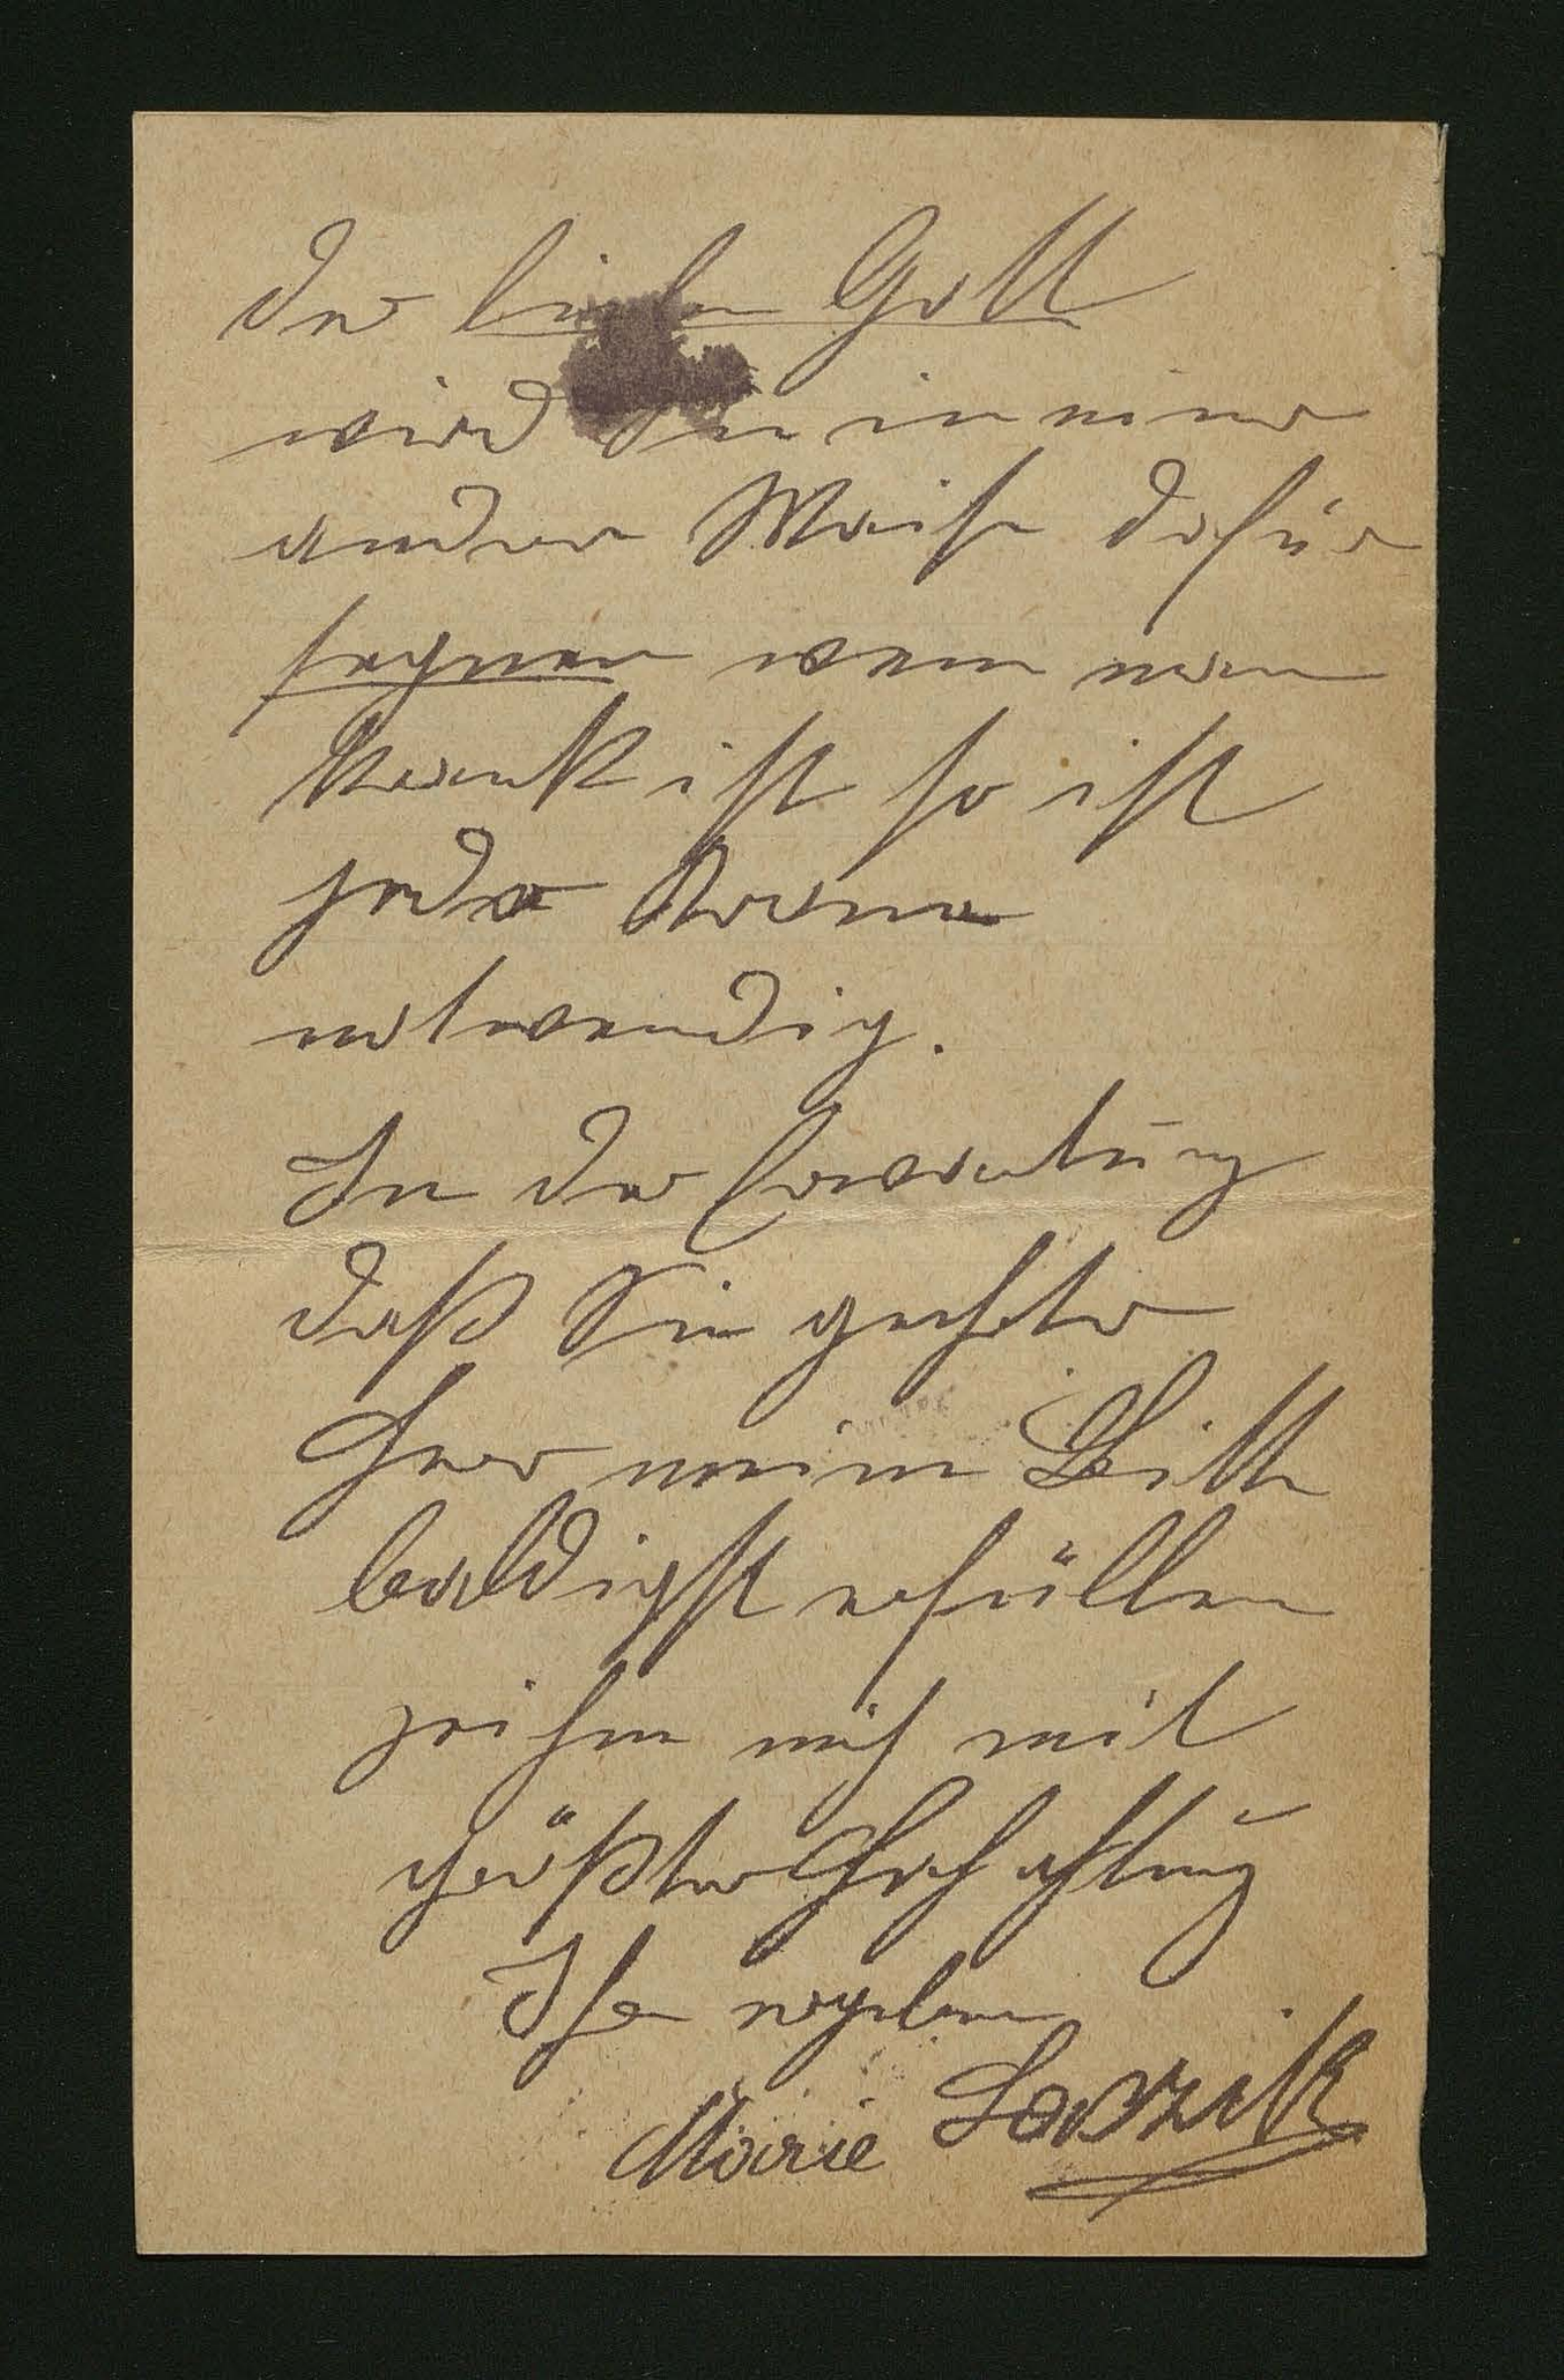 der liebe Gott
wird Sie in einer
anderen Weise dafür
segnen wenn man
krank ist so ist
jede Krone
notwendig.
In der Erwartung
daß Sie geehrter
Herr meine Bitte
baldigst erfüllen
zeihne mich mit
größter Hochachtung
Ihre ergebene
Marie